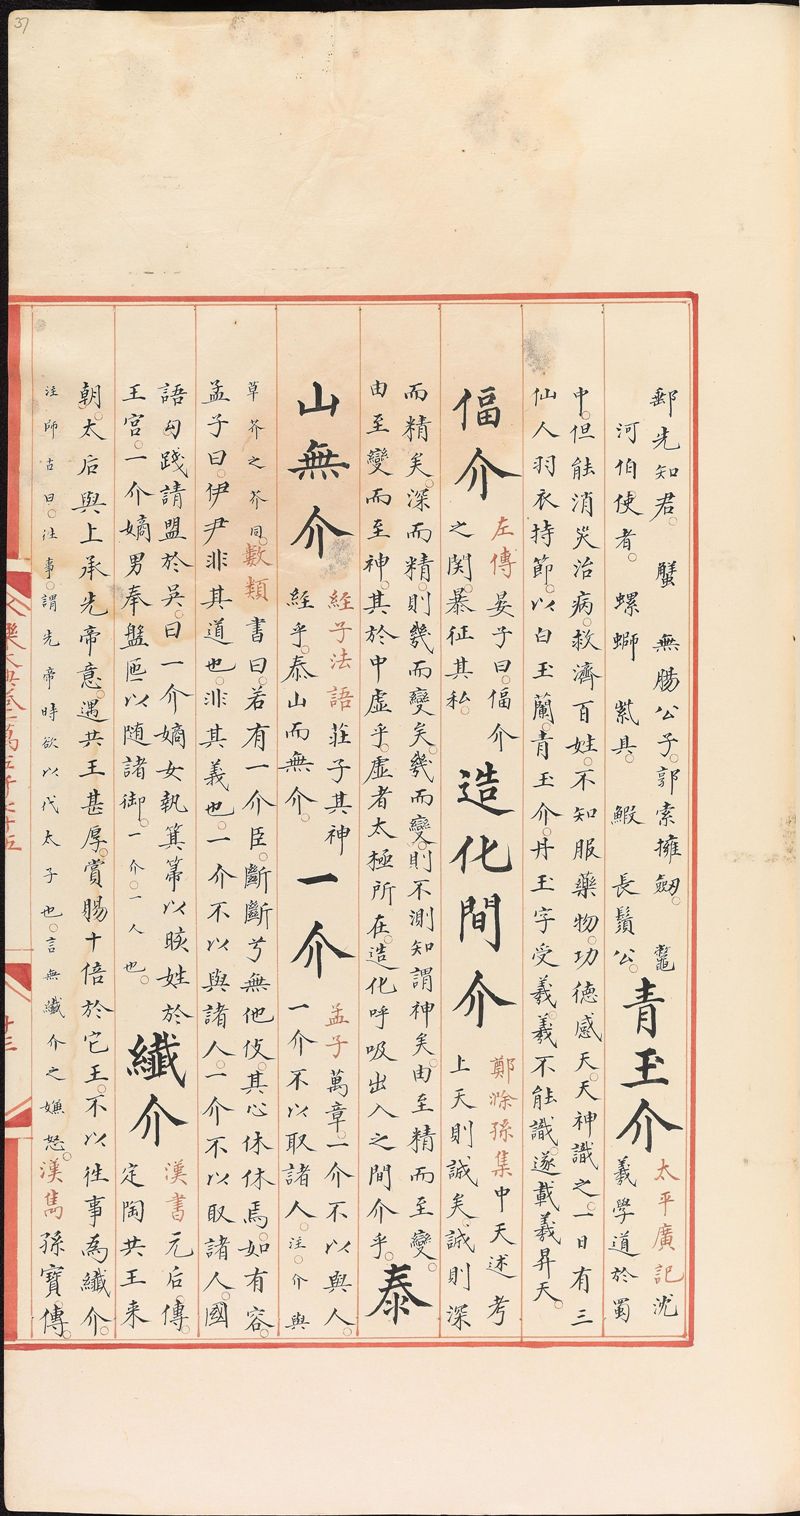 郵先知君。蟹　無腸公子。郭索擁劒。鼇
河伯使者。螺螄　紫具。鰕　長鬚公。
青玉介
太平廣記沈
羲學道於蜀
中。但能消災治病。救濟百姓。不知服藥物。功德感天。天神識之。一日有三
仙人羽衣持節。以白玉蘭。青玉介。丹玉字受羲。羲不能識。遂載羲昇天。
偪介
左傳晏子曰。偪介
之関。暴征其私。
造化間介
鄭滁孫集中天述考
上天則誠矣。誠則深
而精矣。深而精。則幾而變矣。幾而變。則不測知謂神矣。由至精而至變。
由至變而至神。其於中虛乎。虛者太極所在。造化呼吸出入之間介乎。
泰
山無介
經子法語莊子其神
經乎。泰山而無介。
一介
孟子萬章。一介不以與人。
一介不以取諸人。注。介與
草芥之芥同。數類書曰。若有一介臣。斷斷兮無他伎。其心休休焉。如有容。
孟子曰。伊尹非其道也。非其義也。一介不以與諸人。一介不以取諸人。國
語勾踐請盟於吳。曰一介嫡女執箕箒以晐姓於
王宮。一介嫡男奉盤匜以随諸御。一介。一人也。
纖介
漢書元后傳。
定陶共王来
朝。太后與上承先帝意。遇共王甚厚。賞賜十倍於它王。不以往事為纖介。
注師古曰。往事。謂先帝時欲以代太子也。言無纖介之嫌怒。漢雋孫寶傳。
樂大典卷一萬五千七十五
廿三
37